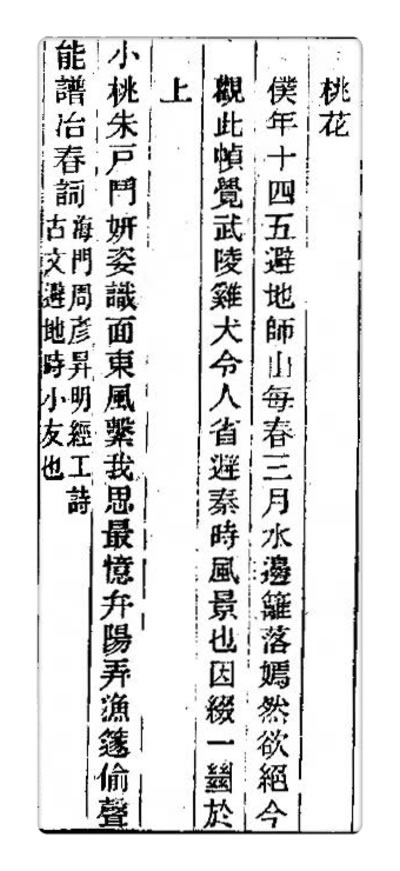 桃花
僕年十四五避地師山每春三月水邊籬落嫣然欲絕今
觀此幀覺武陵雞犬令人省避秦時風景也因綴一𨷺於
上
小桃朱戸鬥妍姿識面東風繫我思最憶弁陽弄漁篴偷聲
能譜冶春詞
海門周彥昇明經工詩
古文避地時小友也